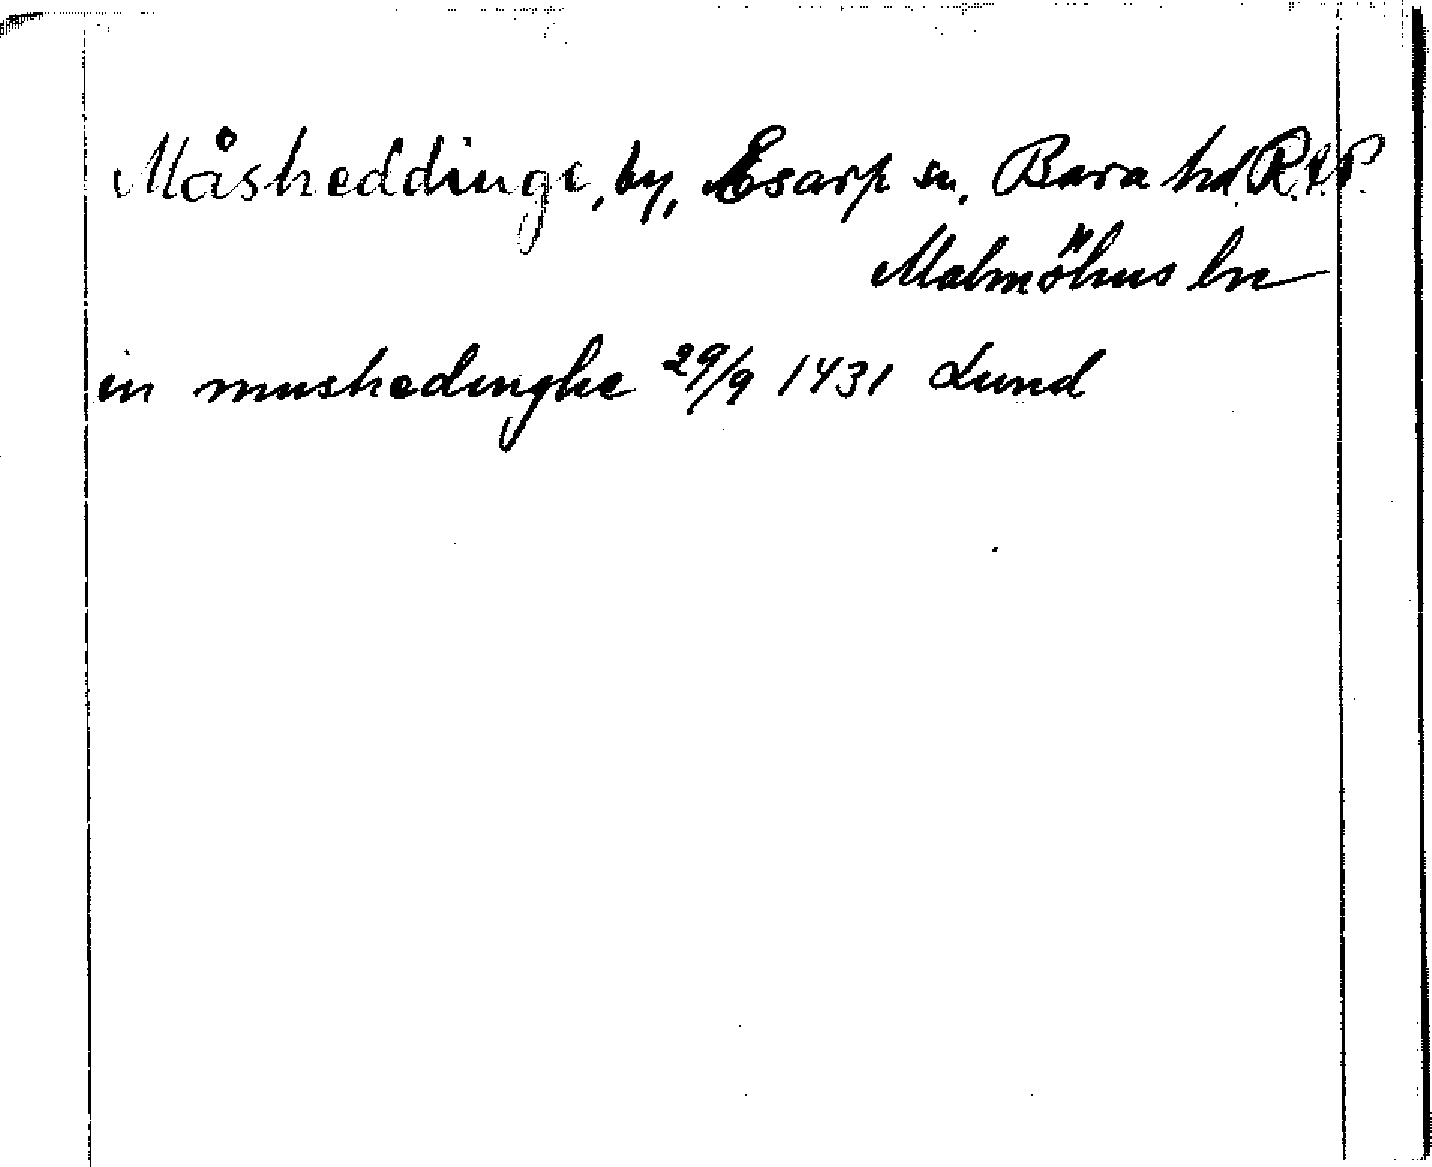 Måsheddinge, by, Esarp sn, Bara hd R.t.P.
Malmöhus ln
in mushedinghe 29/9 1431 Lund